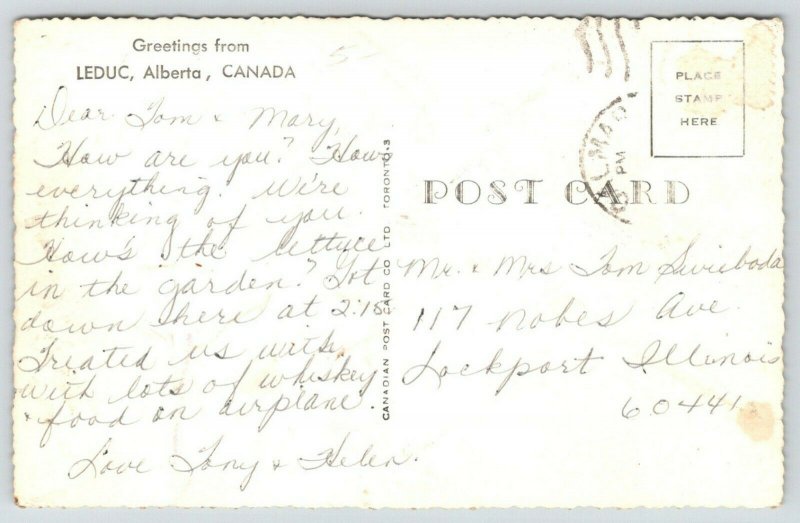 Greetings from
LEDUC, Alberta, CANADA
5
Dear Tom & Mary,
How are you? How
everything. We're
thinking of you.
How's the lettuce
in the garden? Got
down here at 2:15
Treated us with
with lots of whiskey
& food on airplane.
Love Tony & Helen.
CANADIAN POST CARD CO LTD. TORONTO-3
PLACE
STAMP
HERE
PM
POST CARD
Mr. & Mrs Tom Swieboda
117 Nobes Ave.
Lockport Illinois
60441